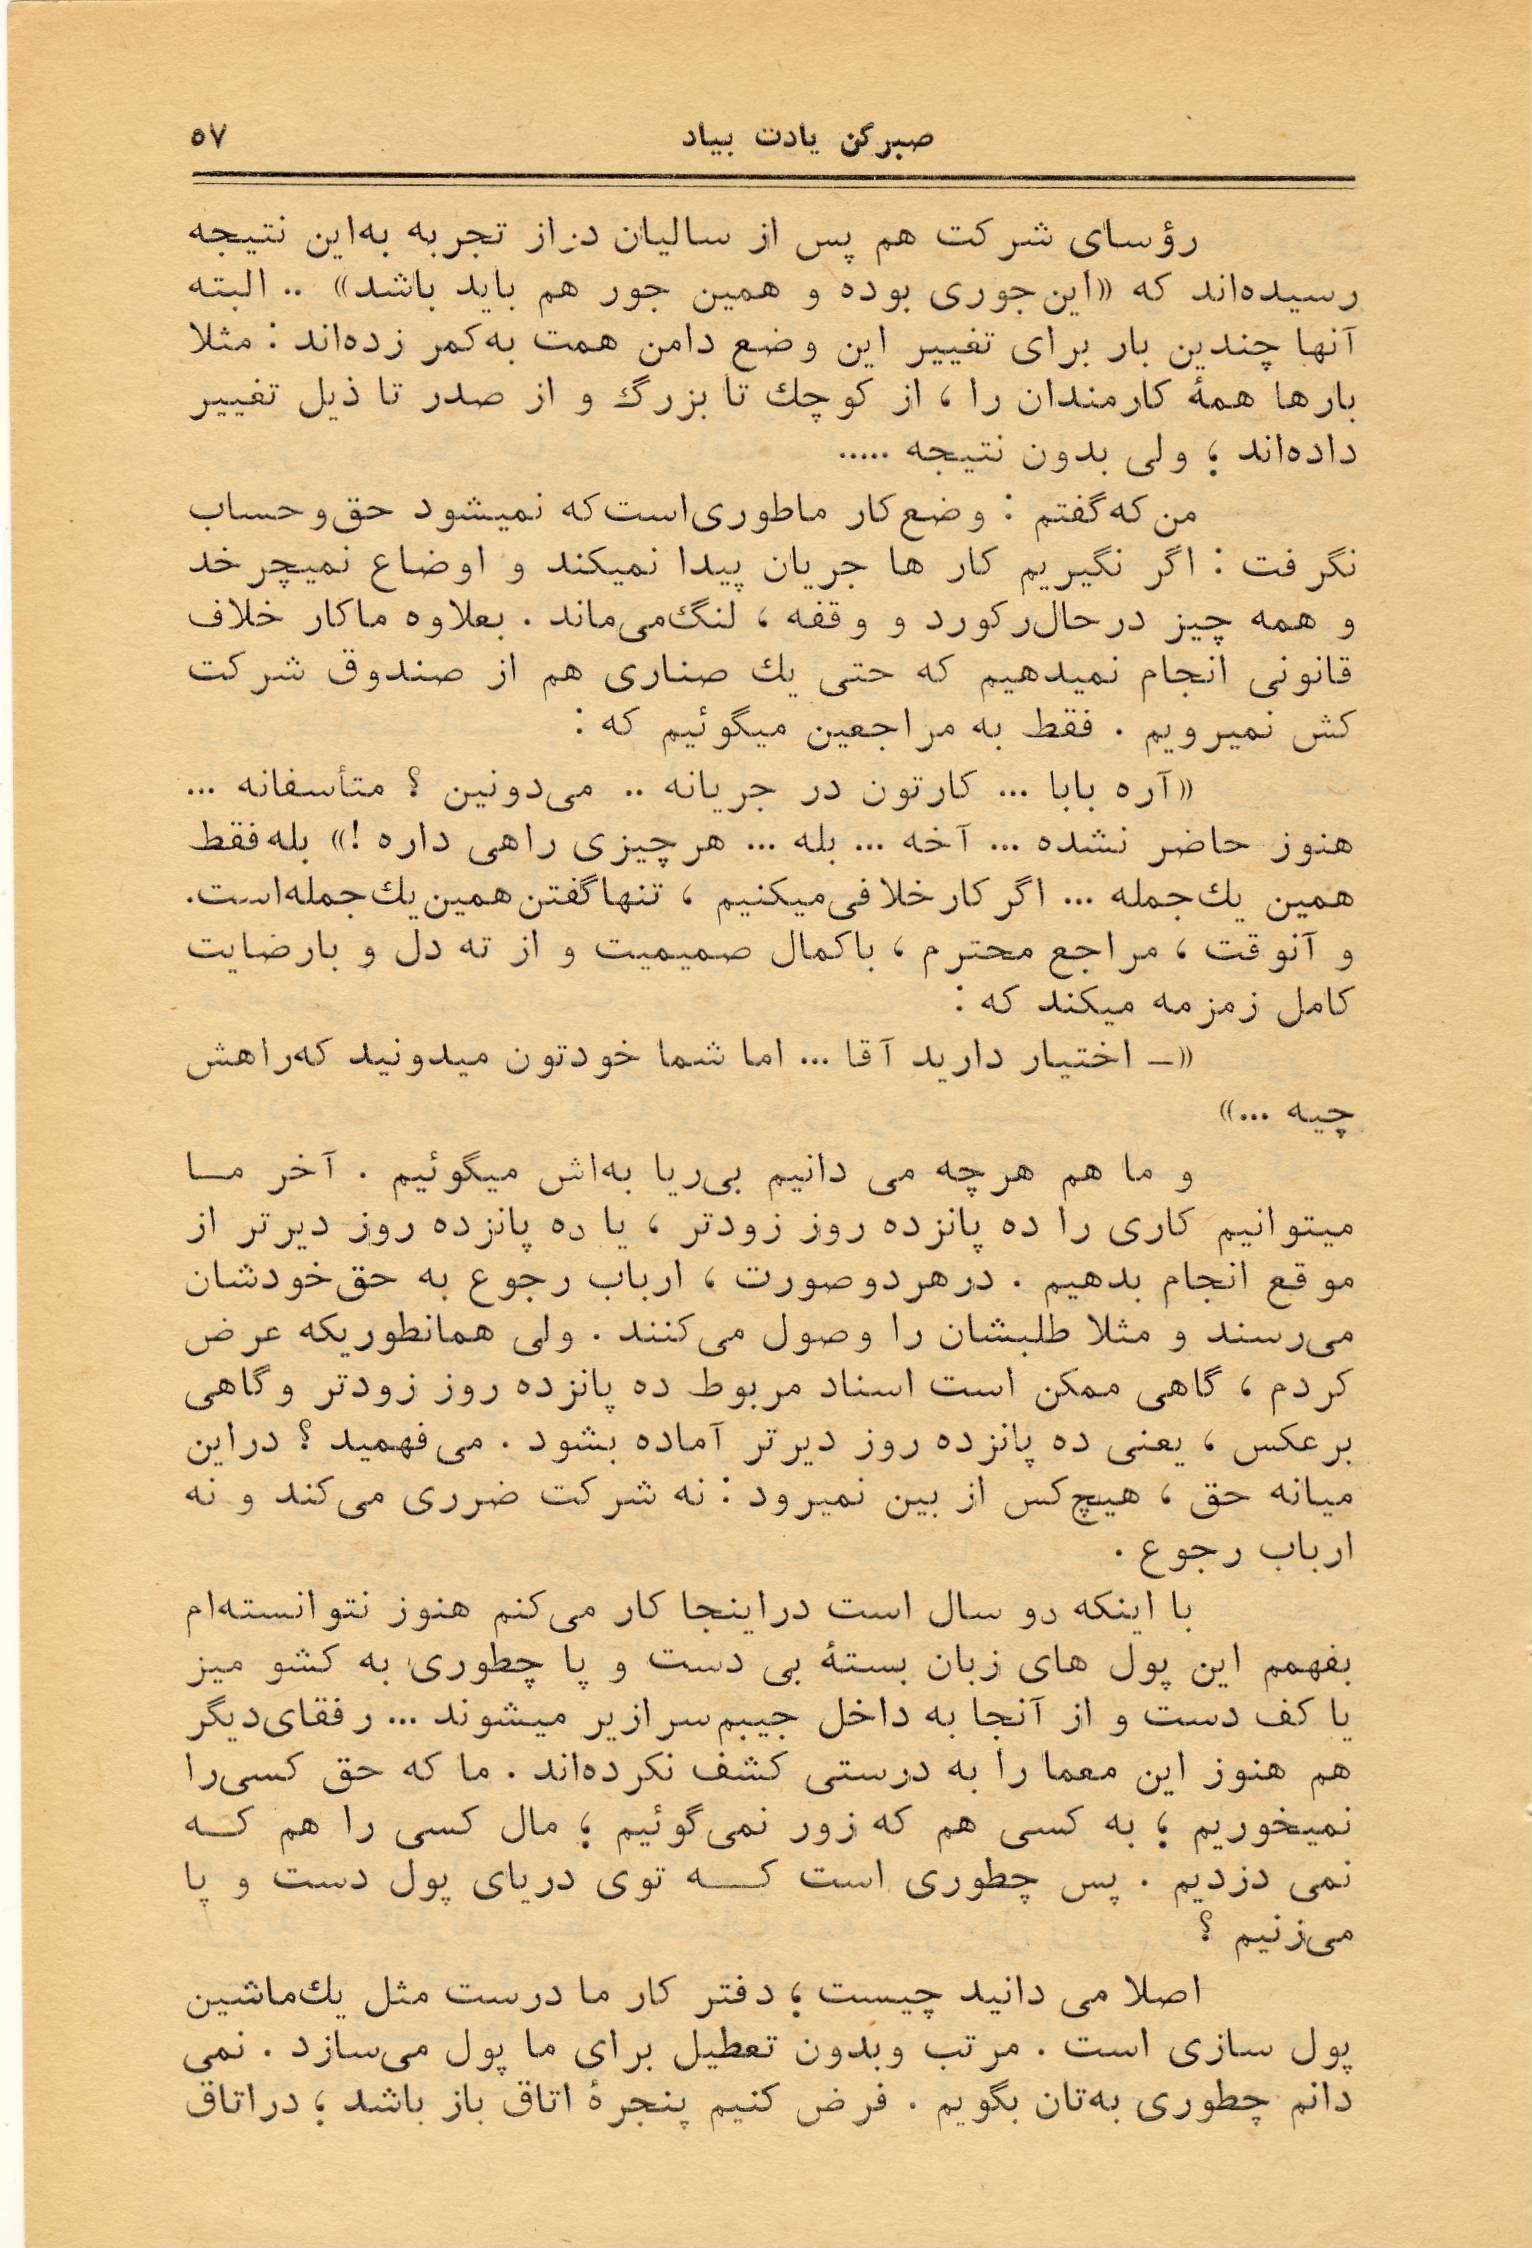 صبر کن یادت بیاد ۵۷
رؤسای شرکت هم پس از سالیان دراز تجربه به‌این نتیجه
رسیده‌اند که «این‌جوری بوده و همین جور هم باید باشد» .. البته
آنها چندین بار برای تغییر این وضع دامن همت به‌کمر زده‌اند : مثلا
بارها همهٔ کارمندان را ، از کوچك تا بزرگ و از صدر تا ذیل تغییر
داده‌اند ؛ ولی بدون نتیجه .....
من که گفتم : وضع کار ماطوری‌است که نمیشود حق‌وحساب
نگرفت : اگر نگیریم کار ها جریان پیدا نمیکند و اوضاع نمیچرخد
و همه چیز درحال‌رکورد و وقفه ، لنگ‌می‌ماند . بعلاوه ماکار خلاف
قانونی انجام نمیدهیم که حتی یك صناری هم از صندوق شرکت
کش نمیرویم . فقط به مراجعین میگوئیم که :
«آره بابا ... کارتون در جریانه .. می‌دونین ؟ متأسفانه ...
هنوز حاضر نشده ... آخه ... بله ... هرچیزی راهی داره !» بله‌فقط
همین یك‌جمله ... اگر کارخلافی‌میکنیم ، تنهاگفتن همین‌یك‌جمله‌است.
و آنوقت ، مراجع محترم ، باکمال صمیمیت و از ته دل و بارضایت
کامل زمزمه میکند که :
«ـ اختیار دارید آقا ... اما شما خودتون میدونید که‌راهش
چیه ...»
و ما هم هرچه می دانیم بی‌ریا به‌اش میگوئیم . آخر مـا
میتوانیم کاری را ده پانزده روز زودتر ، یا ده پانزده روز دیرتر از
موقع انجام بدهیم . درهردوصورت ، ارباب رجوع به حق‌خودشان
می‌رسند و مثلا طلبشان را وصول می‌کنند . ولی همانطوریکه عرض
کردم ، گاهی ممکن است اسناد مربوط ده پانزده روز زودتر وگاهی
برعکس ، یعنی ده پانزده روز دیرتر آماده بشود . می‌فهمید ؟ دراین
میانه حق ، هیچ‌کس از بین نمیرود : نه شرکت ضرری می‌کند و نه
ارباب رجوع .
با اینکه دو سال است دراینجا کار می‌کنم هنوز نتوانسته‌ام
بفهمم این پول های زبان بستهٔ بی دست و پا چطوری به کشو میز
یا کف دست و از آنجا به داخل جیبم‌سرازیر میشوند ... رفقای‌دیگر
هم هنوز این معما را به درستی کشف نکرده‌اند . ما که حق کسی‌را
نمیخوریم ؛ به کسی هم که زور نمی‌گوئیم ؛ مال کسی را هم کـه
نمی دزدیم . پس چطوری است کـــه توی دریای پول دست و پا
می‌زنیم ؟
اصلا می دانید چیست ؛ دفتر کار ما درست مثل یك‌ماشین
پول سازی است . مرتب وبدون تعطیل برای ما پول می‌سازد . نمی
دانم چطوری به‌تان بگویم . فرض کنیم پنجرهٔ اتاق باز باشد ؛ دراتاق